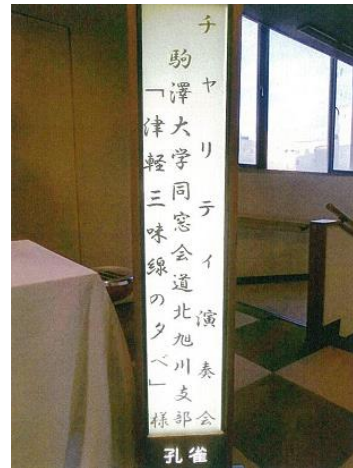 チャリティ演奏会
駒澤大学同窓会道北旭川支部
「津軽三味線の夕べ」様
孔雀